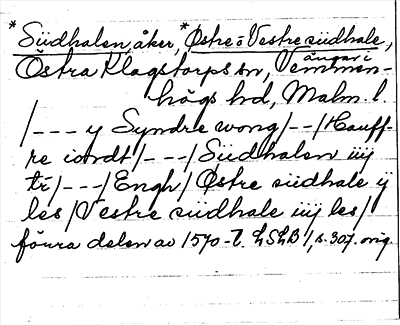 *Südhalen, åker, *Østre o Vestre südhale,
ängar i
Östra Klagstorps sn, Vemmen-
högs hd, Malm. l.
/--- y Syndre wong/--/Hauff-
re iordt/---/Südhalen iiij
tr/---/Engh/Østre südhale ij
les/Vestre südhale iiij les/
förra delen av 1570-t. LSLB 1, s. 307. orig.